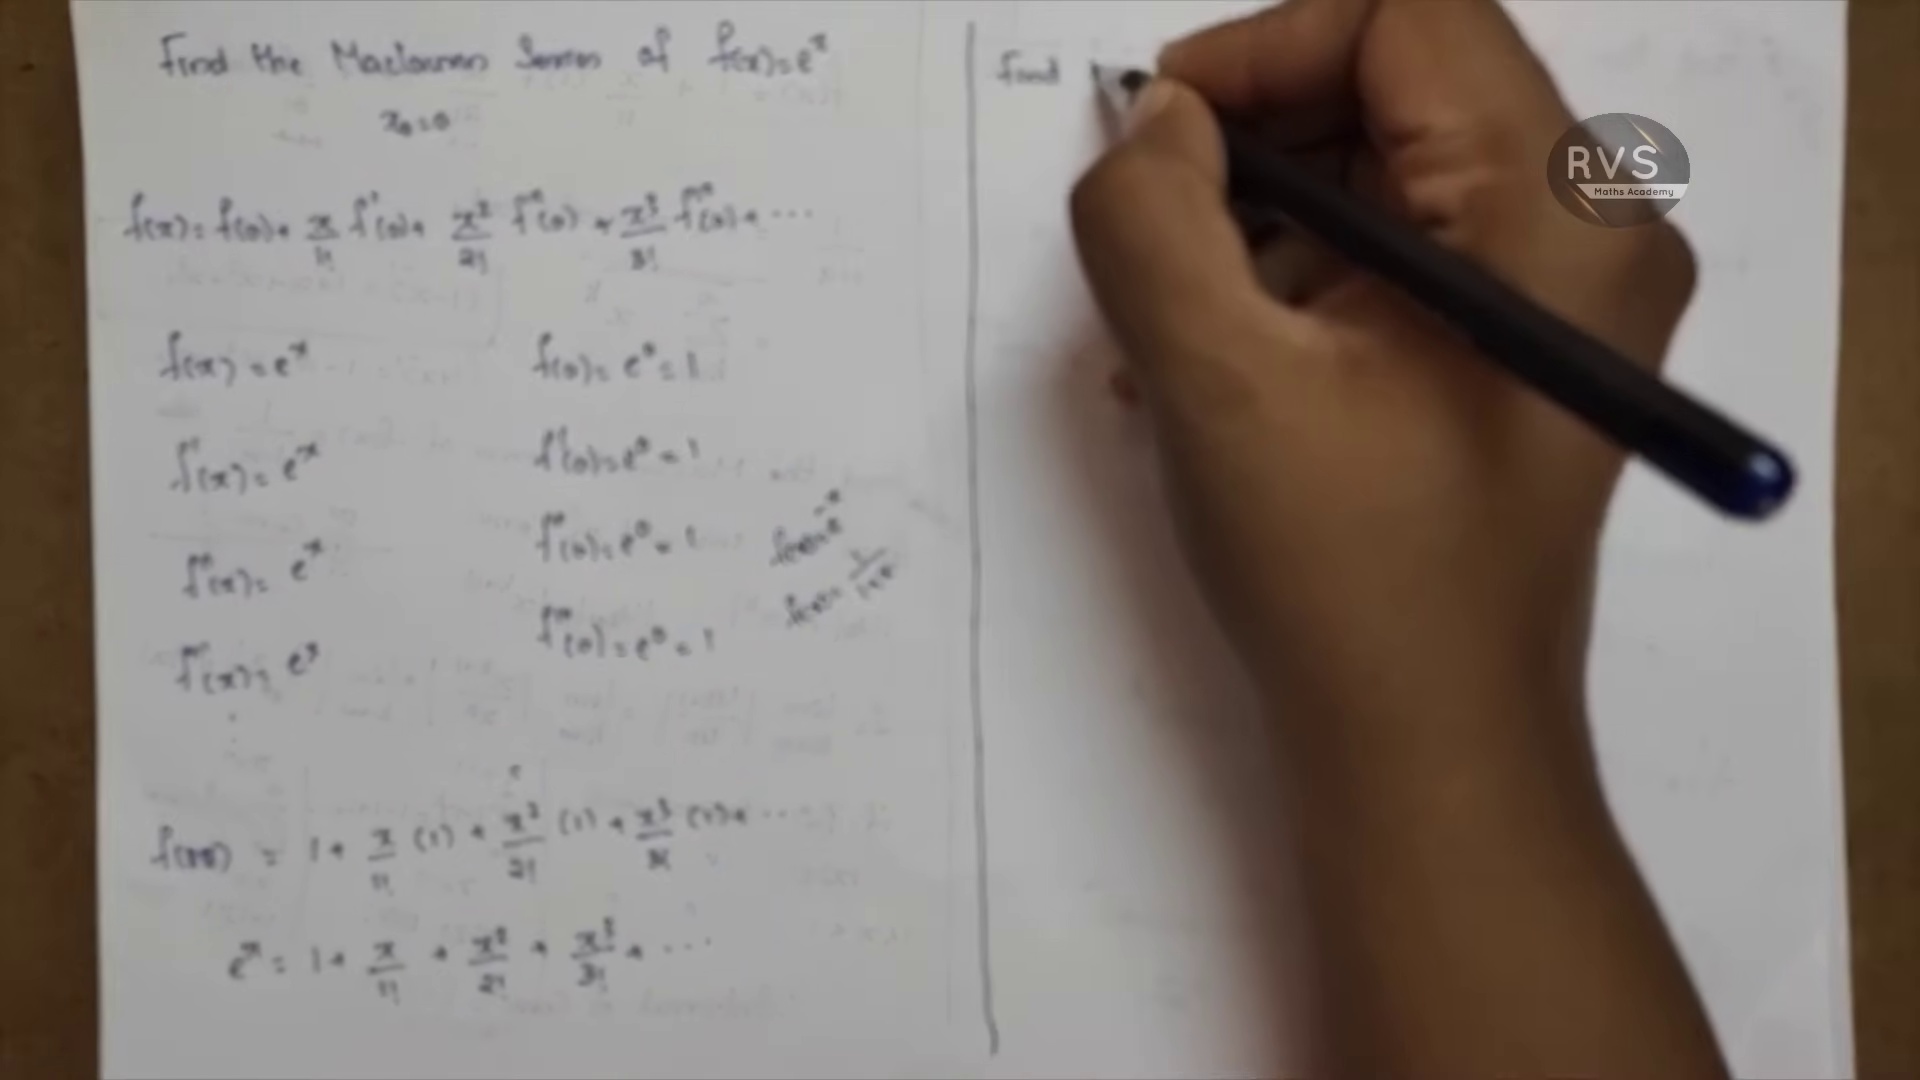 Find the Maclauren Series of f(x)=e^x
x₀=0
f(x)= f(0)+ x/1! f'(0)+ x²/2! f''(0) + x³/3! f'''(0)+ ...
f(x) = e^x
f(0)= e⁰ = 1
f'(x)= e^x
f'(0)=e⁰ = 1
f''(x)= e^x
f''(0)=e⁰ = 1
f'''(x)= e^x
f'''(0)=e⁰ = 1
f(x)=e^-x
f(x)= 1/1+x
f(x) = 1+ x/1! (1) + x²/2! (1) + x³/3! (1)+ ...
e^x = 1+ x/1! + x²/2! + x³/3! + ...
Find
RVS
Maths Academy